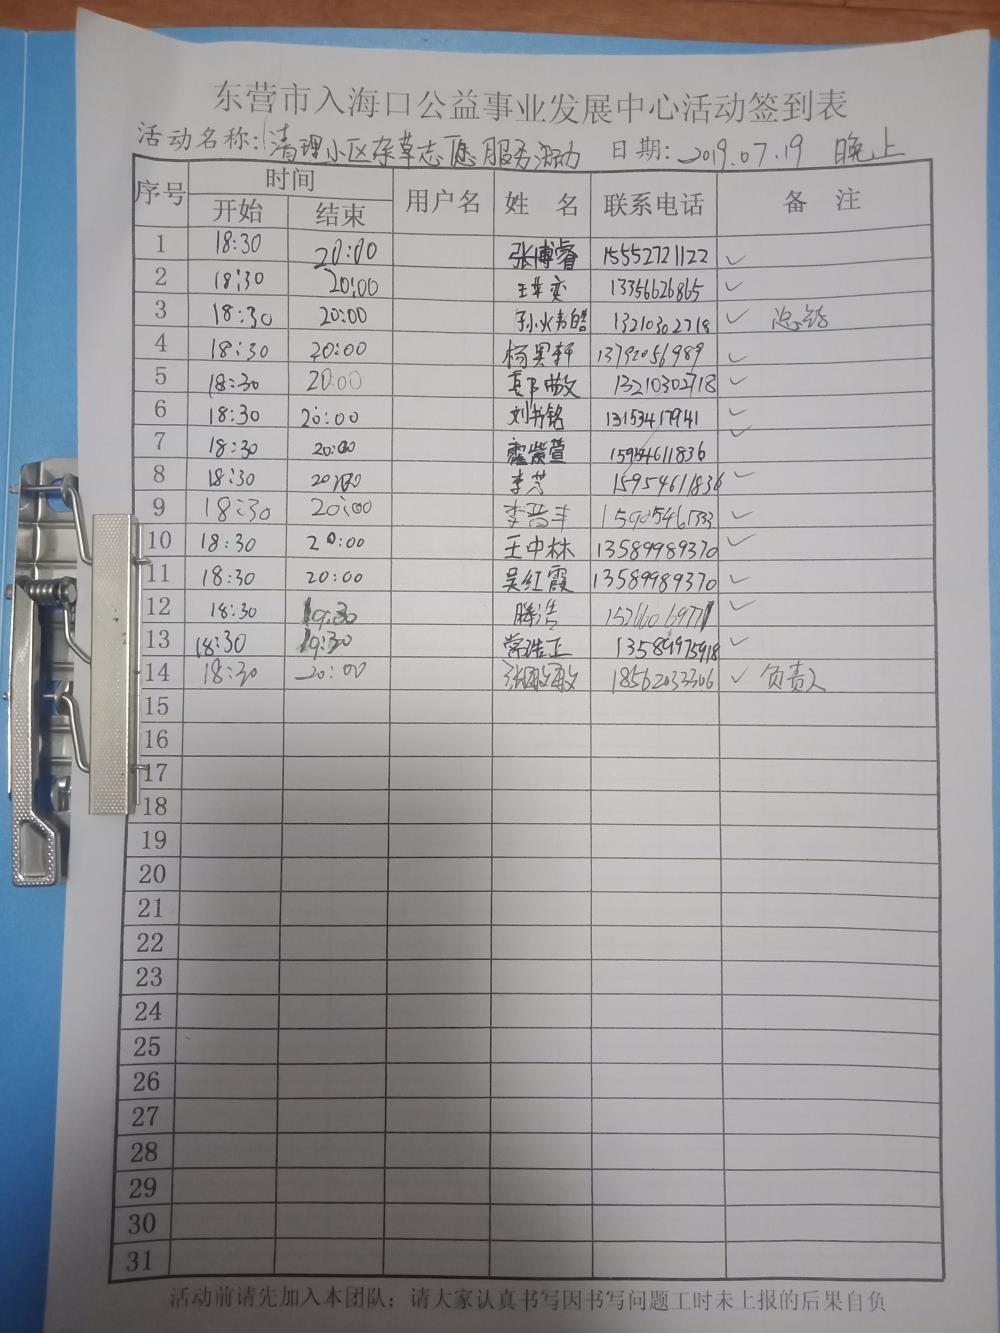 东营市入海口公益事业发展中心活动签到表
活动名称: 清理小区杂草志愿服务活动 日期: 2019.07.19 晚上
序号 时间 用户名 姓 名 联系电话 备 注
开始 结束
1 18:30 20:00 张博睿 15552721122 ✓
2 18:30 20:00 13356626865 ✓
3 18:30 20:00 孙炜皓 13210302718 ✓
4 18:30 20:00 杨昊轩 13792056989 ✓
5 18:30 20:00 13210302718 ✓
6 18:30 20:00 刘书铭 13153417941 ✓
7 18:30 20:00 霍紫萱 15954611836 ✓
8 18:30 20:00 李芳 15954611836 ✓
9 18:30 20:00 李晋丰 ✓
10 18:30 20:00 王中林 13589989370 ✓
11 18:30 20:00 吴红霞 13589989370 ✓
12 18:30 19:30 滕浩 15266069771 ✓
13 18:30 19:30 常浩正 13589975918 ✓
14 18:30 20:00 张敏敏 18562033306 ✓ 负责人
15
16
17
18
19
20
21
22
23
24
25
26
27
28
29
30
31
活动前请先加入本团队；请大家认真书写因书写问题工时未上报的后果自负